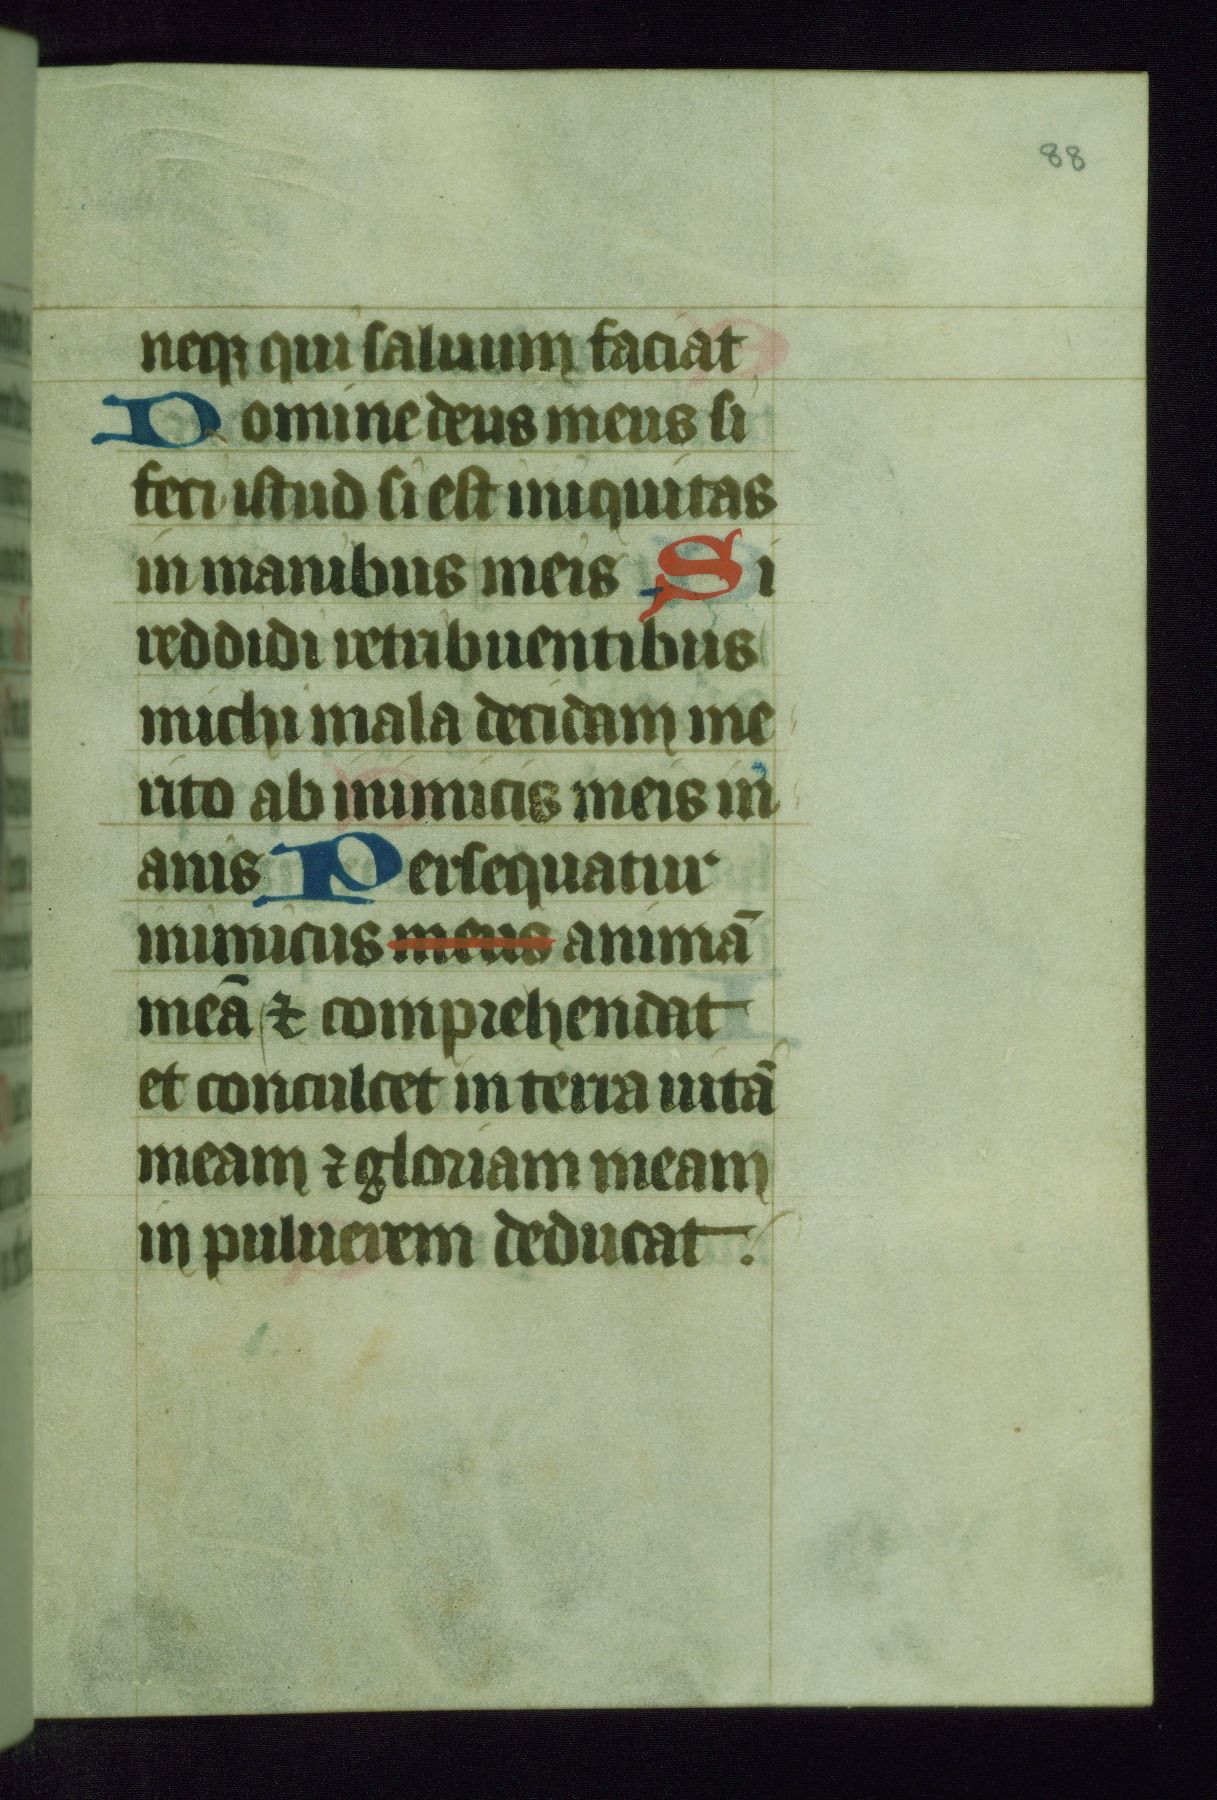 88
neqꝫ qui saluum faciat
Domine deus meus si
feci istud si est iniquitas
in manibus meis Si
reddidi retribuentibus
michi mala decidam me
rito ab inimicis meis in
anis Persequatur
inimicus meus animā
meā ⁊ comprehendat
et conculcet in terra uitā
meam ⁊ gloriam meam
in puluerem deducat.